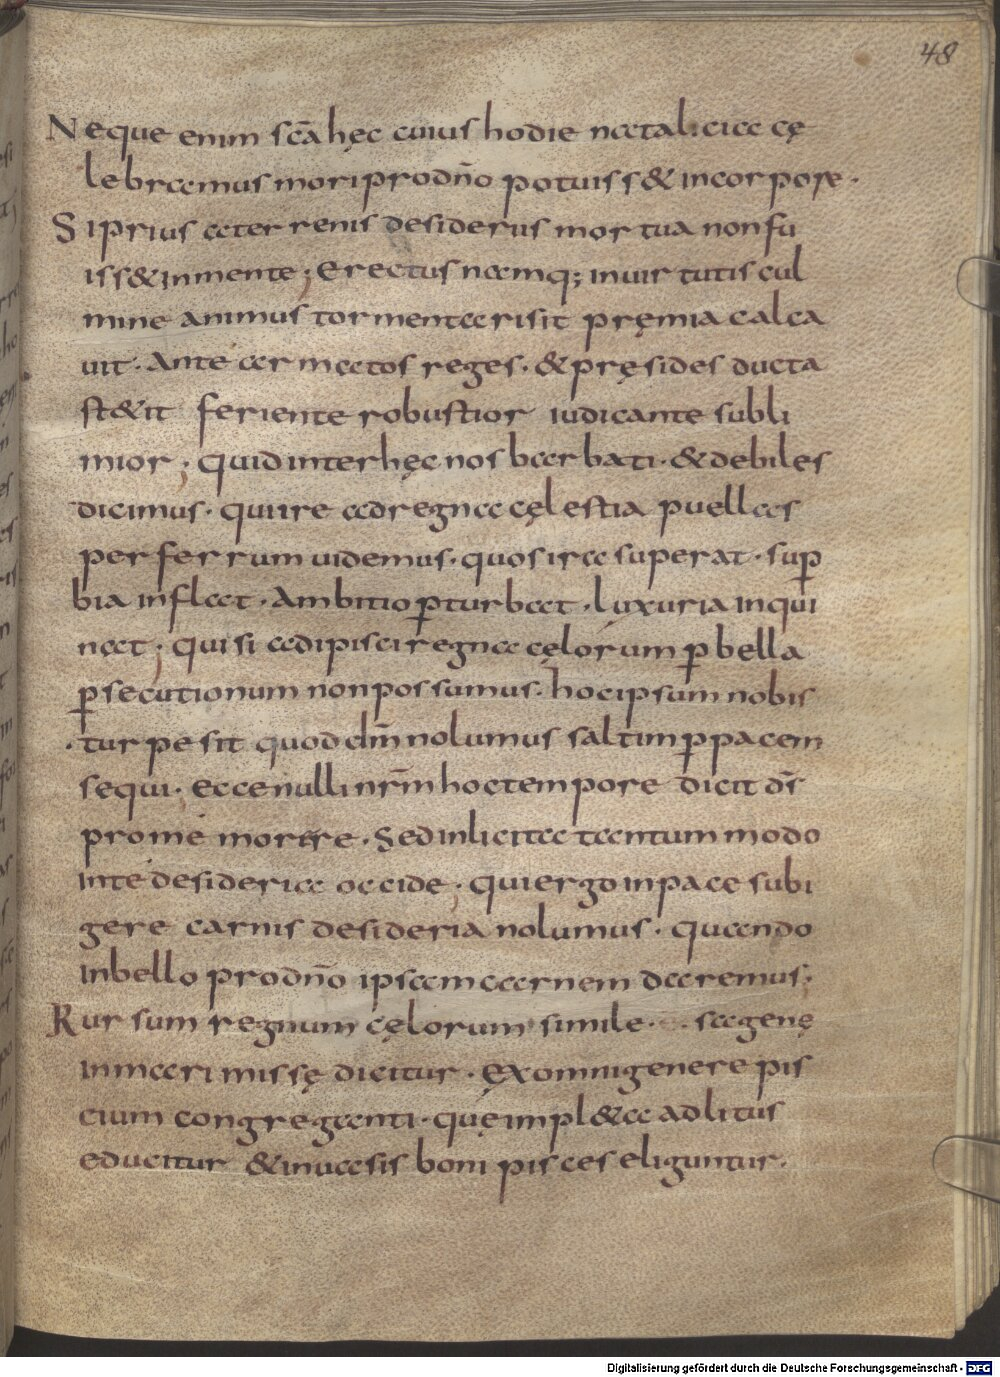 48
Neque enim scā hęc cuius hodie natalicia cę
lebramus mori prodño potuiss& incorpore.
Si prius aterrenis desideriis mortua non fu
iss& inmente; Erectus namq; inuirtutis cul
mine animus tormenta risit pręmia calca
uit. Ante armatos reges. & pręsides ducta
st&it feriente robustior iudicante subli
mior; Quid inter hęc nos barbati. & debiles
dicimus. qui ire adregna cęlestia puellas
per ferrum uidemus. quos ira superat. suꝑ
bia inflat. Ambitio ꝑturbat. luxuria inqui
nat; Qui si adipisci regna cęlorum ꝑ bella
ꝑsecutionum non possumus. hoc ipsum nobis
turpe sit quod dm̄ nolumus saltim ꝑ pacem
sequi. Ecce nulli nrm̄ hoc tempore dicit ds̄
pro me morere. Sed inlicita tantum modo
inte desideria occide; Qui ergo in pace subi
gere carnis desideria nolumus. Quando
inbello prodño ipsam carnem daremus.
Rursum regnum cęlorum simile. sagenę
inmari missę dicitur. Ex omni genere pis
cium congreganti. quę impl&a ad litus
educitur & inuasis boni pisces eliguntur.
Digitalisierung gefördert durch die Deutsche Forschungsgemeinschaft - DFG